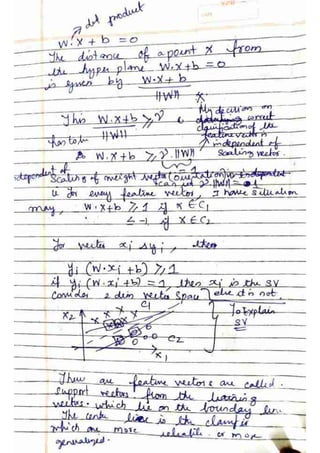 dot product
W.X + b = 0
The distance of a point X from
the hyper plane W.X + b = 0
is given by W.X + b
||W||
This W.X + b ≥ γ
has to be ||W||
My decision on
correct
classification of the
feature vector
is independent of
Scaling vector.
W.X + b ≥ γ.||W||
= 1
independent of Scaling of weight vector (orientation)
can set γ.||W|| = 1
ie for every feature vector, I have situation
may, W.X + b ≥ 1 if X ∈ C1
≤ -1 if X ∈ C2
for vector xi & yi, then
yi (W.xi + b) ≥ 1
if yi (W.xi + b) = 1, then xi is the SV
else it is not.
Consider 2 dim vector space
To Explain
SV
X2
C1
C2
X1
There are feature vectors are called
Support vectors from the learning
vectors which lie on the boundary line.
The centre line is the
which are more reliable or more
generalized.